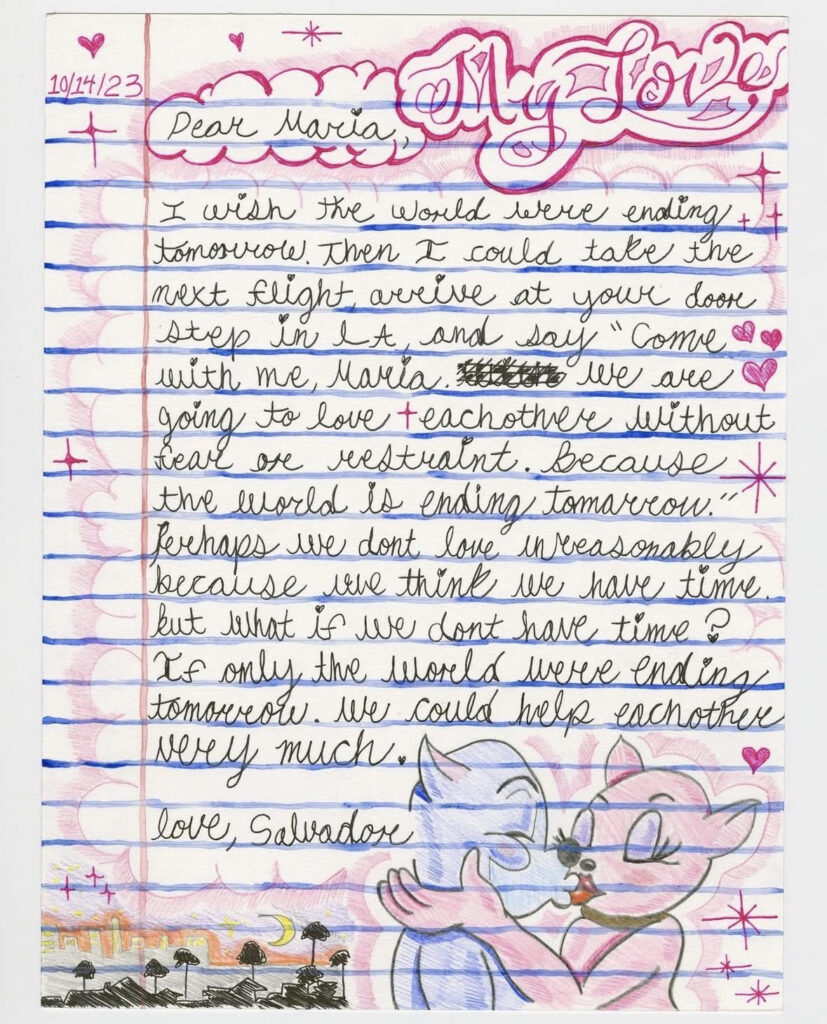 My Love
10/14/23
Dear Maria,
I wish the world were ending
tomorrow. Then I could take the
next flight, arrive at your door
step in LA, and say "Come
with me, Maria. We are
going to love eachother without
fear or restraint. Because
the world is ending tomorrow."
Perhaps we dont love unreasonably
because we think we have time.
but what if we dont have time?
If only the world were ending
tomorrow. We could help eachother
very much.
love, Salvador